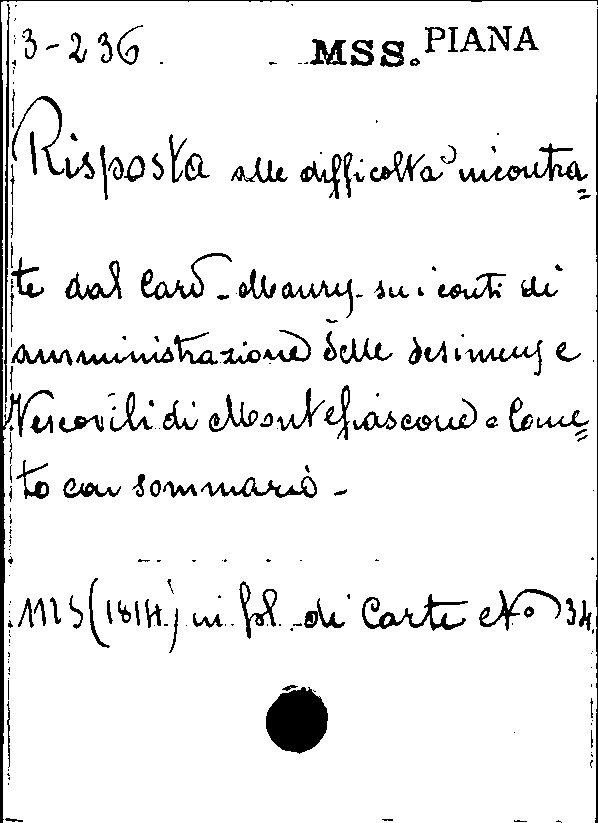 3-236 MSS. PIANA
Risposta alle difficoltà incontra=
te dal Card. Maury su i conti di
amministrazione delle
Vescovili di Montefiascone e Corne=
to con sommario -
MS (1814) in fol. di Carte No 34